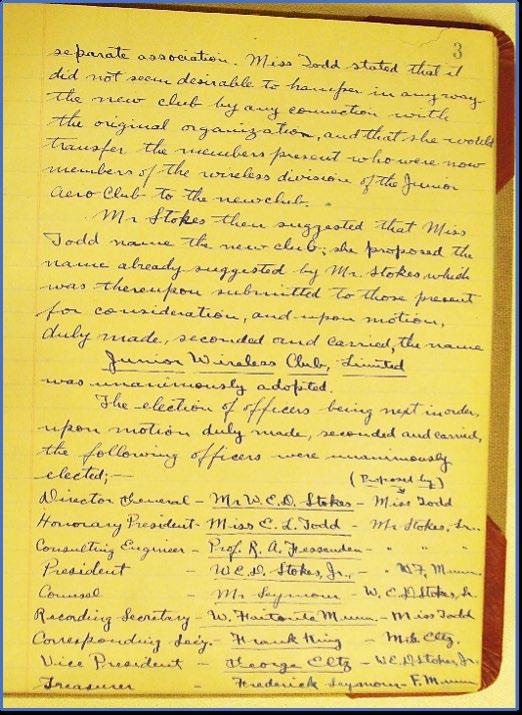 3
separate association. Miss Todd stated that it
did not seem desirable to hamper in any way
the new club by any connection with
the original organization, and that she would
transfer the members present who were now
members of the wireless division of the Junior
Aero Club to the new club.
Mr Stokes then suggested that Miss
Todd name the new club; she proposed the
name already suggested by Mr. Stokes, which
was thereupon submitted to those present
for consideration, and upon motion,
duly made, seconded and carried, the name
Junior Wireless Club, Limited
was unanimously adopted.
The election of officers being next in order,
upon motion duly made, seconded and carried,
the following officers were unanimously
elected;— (Proposed by)
Director General – Mr W.E.D. Stokes – Miss Todd
Honorary President – Miss E. L. Todd – Mr Stokes, Sr.
Consulting Engineer – Prof. R. A. Fessenden – " " "
President – W.E.D. Stokes, Jr., – " W.F. Munn.
Counsel – Mr Seymour – W.E.D. Stokes, Sr.
Recording Secretary – W. Munn. – Miss Todd
Corresponding Sec'y. – Frank King – Mr. Eltz.
Vice President – George Eltz – W.E.D. Stokes, Jr.
Treasurer – Frederick Seymour – F. Munn